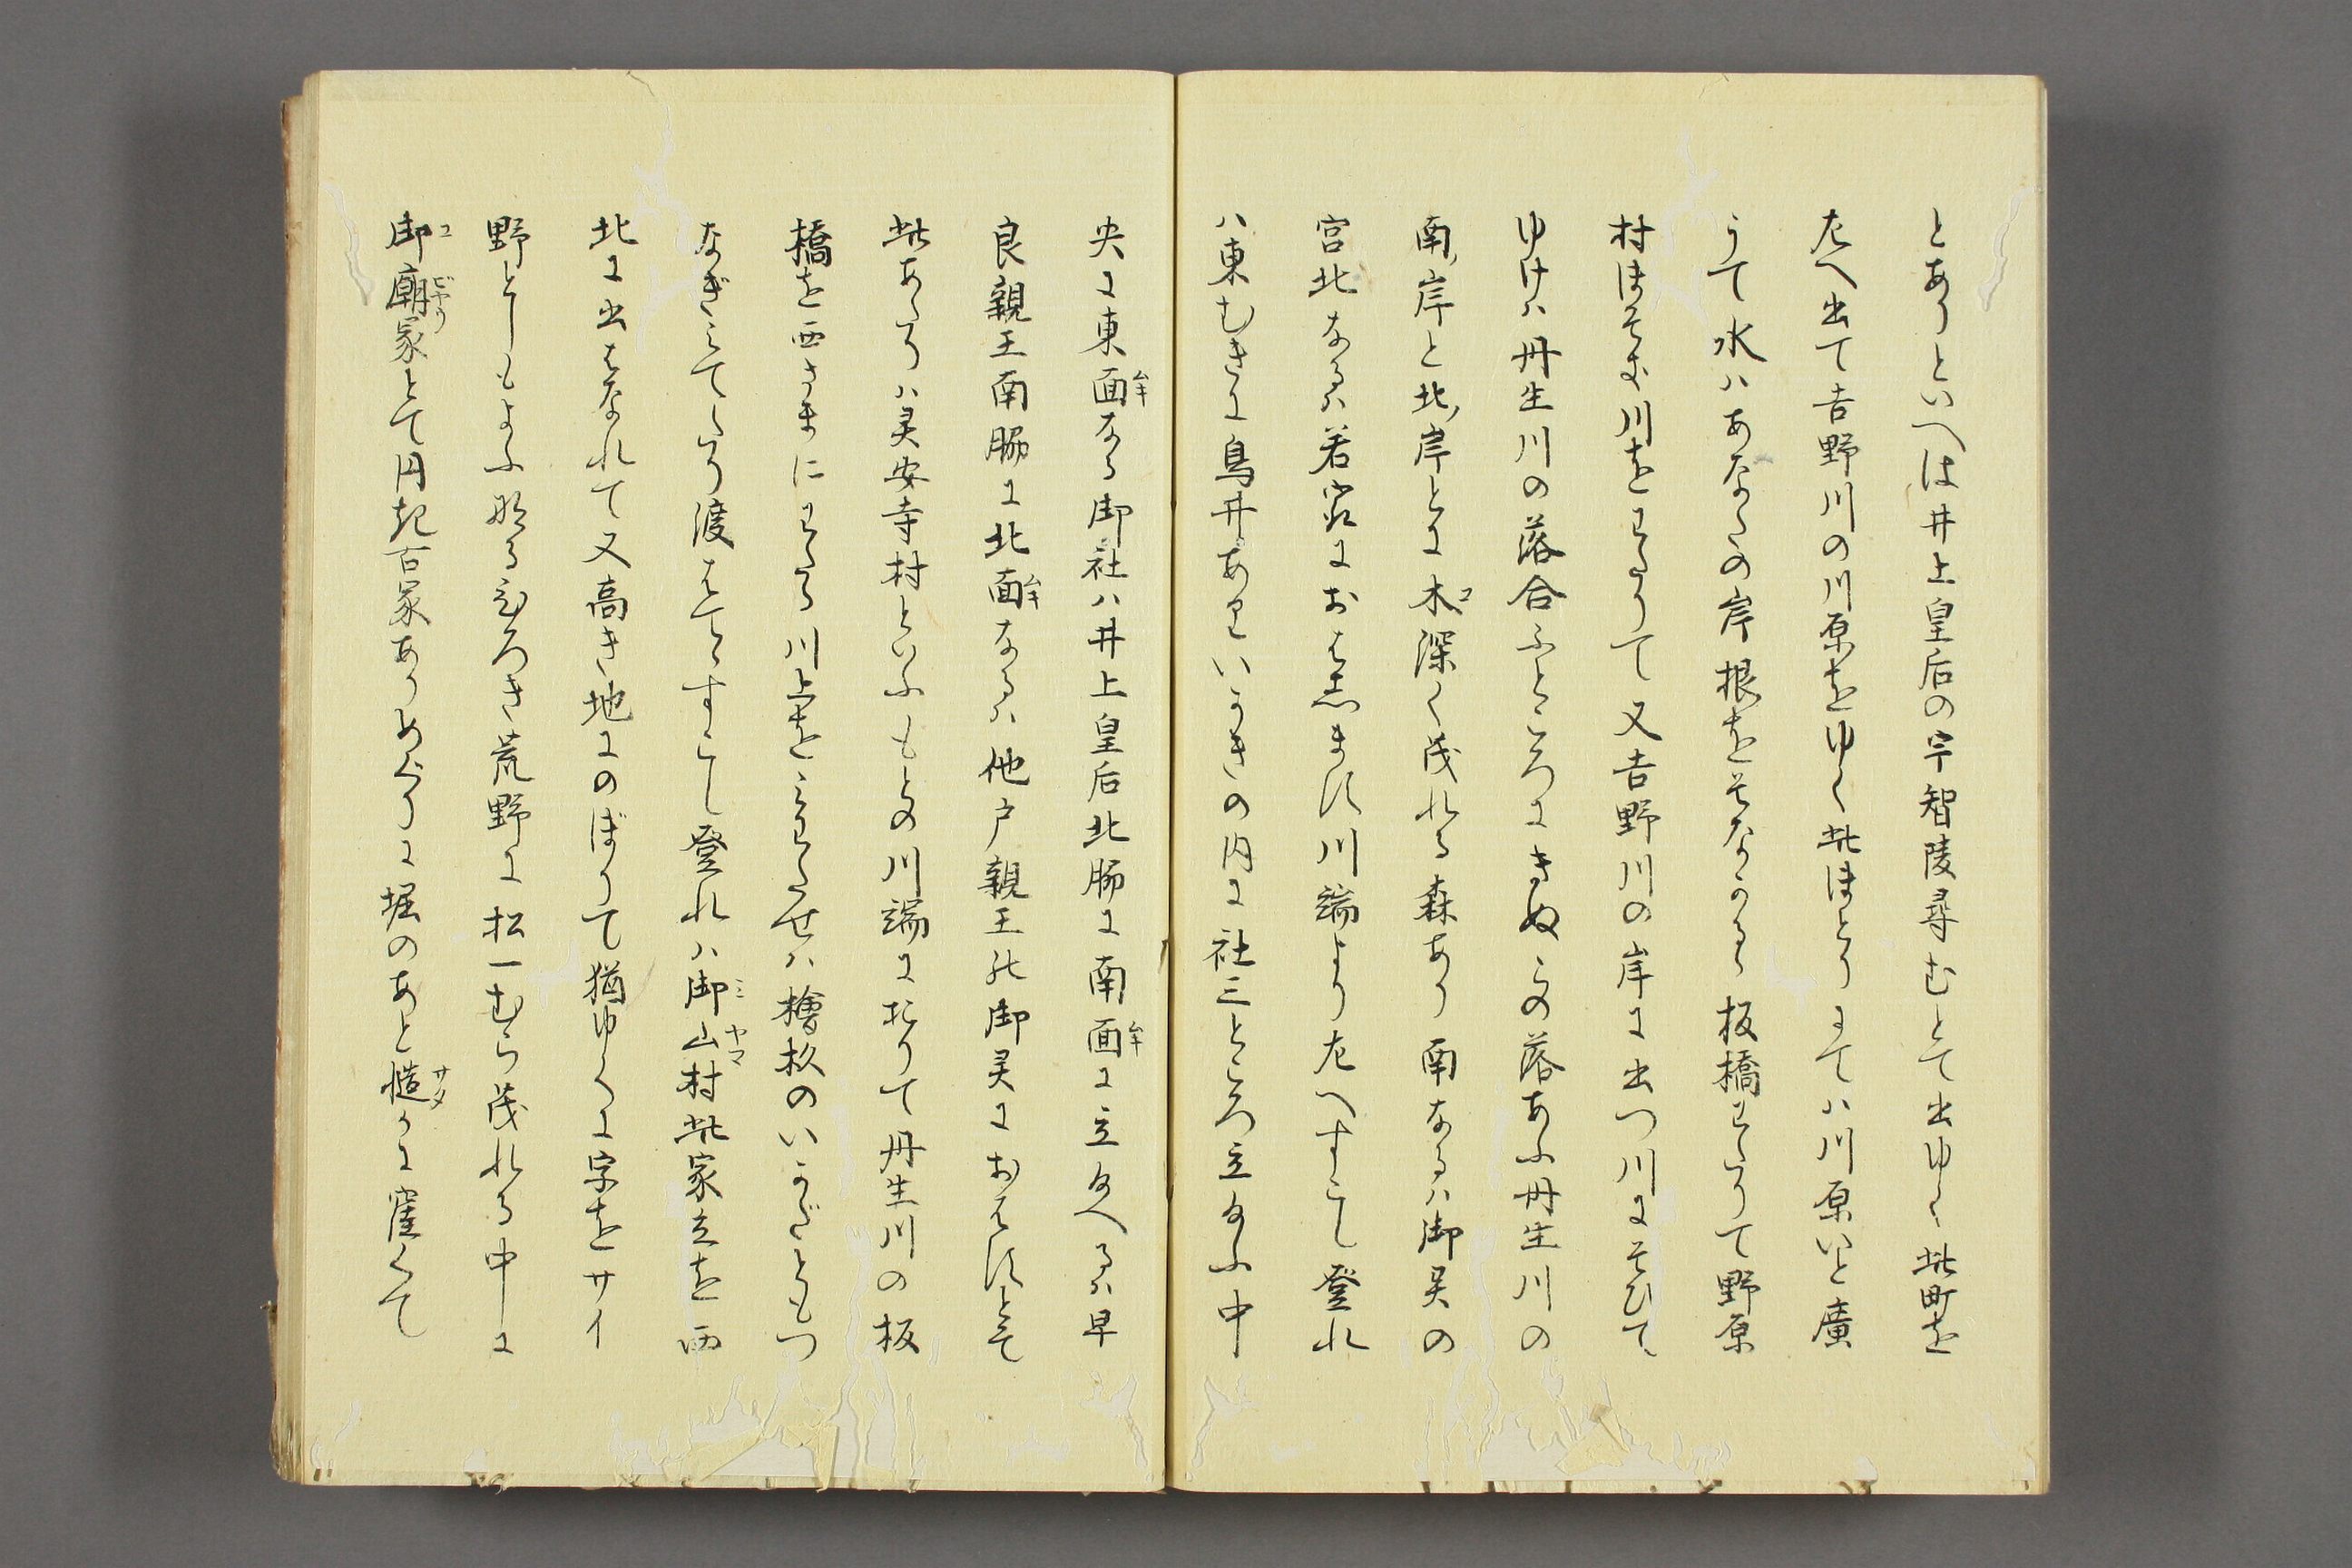 とありといへは井上皇后の宇智陵尋むとて出ゆく此町を
左へ出て吉野川の川原をゆく此ほとりにては川原いと廣
うて水ハあなたの岸根をそなかるゝ板橋わたりて野原
村ほそき川をわたりて又吉野川の岸に出つ川にそひて
ゆけハ丹生川の落合ふところにきぬこの落あふ丹生川の
南ノ岸と北ノ岸とに木コ深く茂れる森あり南なるハ御灵の
宮北なるハ若宮におはしますはし川端より左へすこし登れ
ハ東むきに鳥井ありいかきの内に社三ところ立給ふ中
央に東面ムキなる御社ハ井上皇后北脇に南面ムキに立給へるハ早
良親王南脇に北面ムキなるハ他戸親王の御灵におはすとそ
此あたりハ灵安寺村といふもとの川端におりて丹生川の板
橋を西さまにわたる川上をみわたせハ檜杉のいかだともつ
なぎみてたり渡はてゝすこし登れハ御ミ山ヤマ村此家立を西
北に出はなれて又高き地にのぼりて猶ゆくに字をサイ
野としもよふ形るひろき荒野に松一むら茂れる中に
御コ廟ビヤウ冢とて円き古冢ありめぐりに堀のあと慥サダかに窪くて